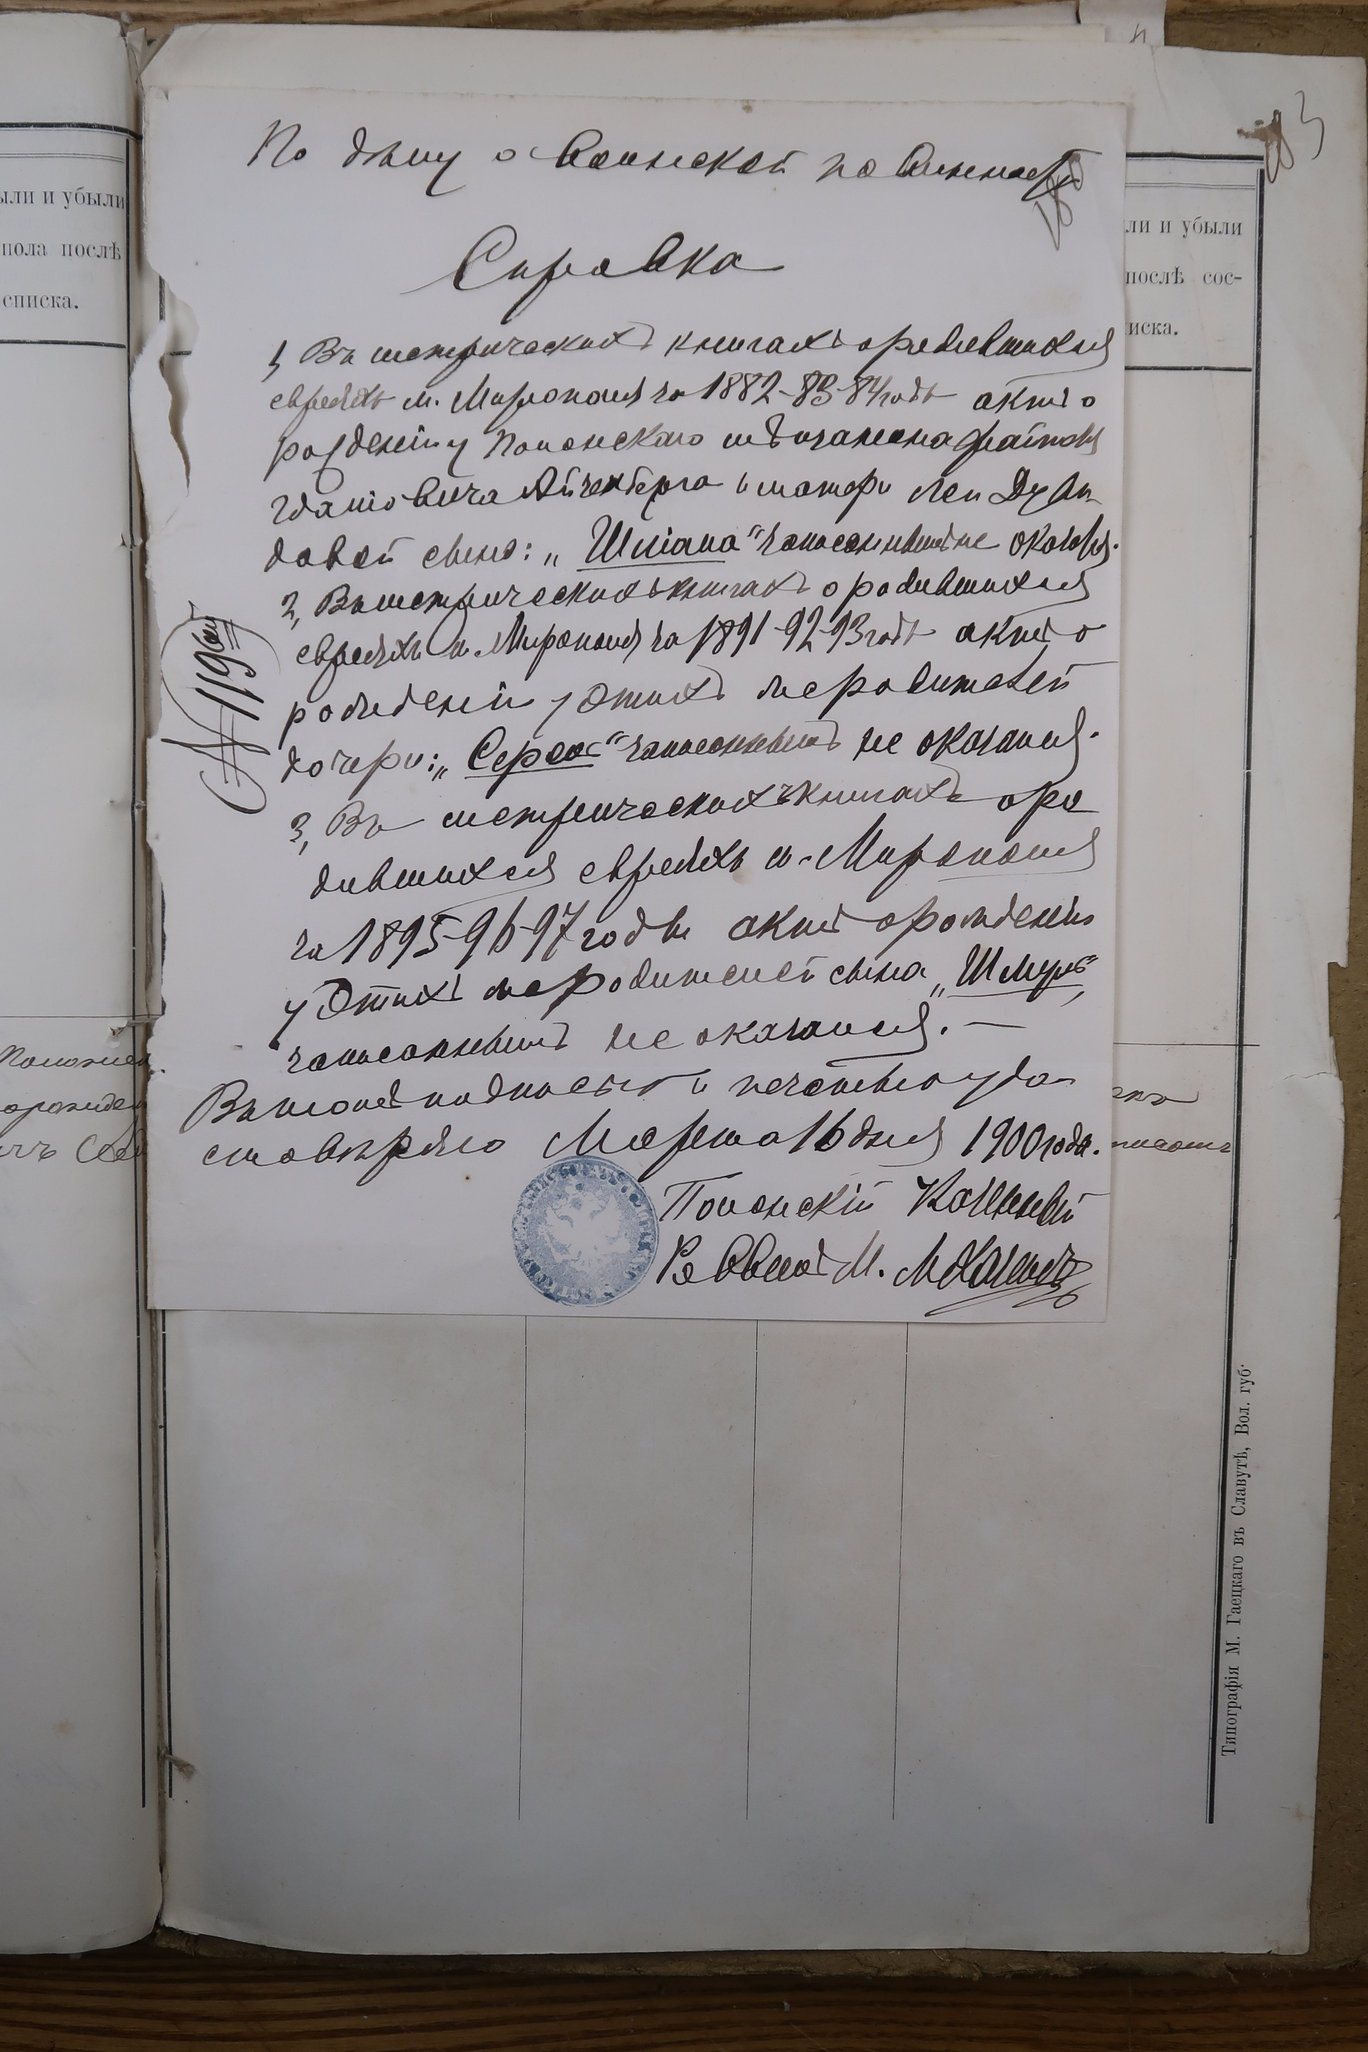 183
По дѣлу о воинской повинности
180
Справка
1, Въ метрическихъ книгахъ о родившихся
евреяхъ м. Мирополя за 1882-83-84 годъ актъ о
рожденіи у Полонскаго мѣщанина
Айзенберга и матери Леи Ду
довой сына: „Шліома" записаннымъ не оказался.
2, Въ метрическихъ книгахъ о родившихся
евреяхъ м. Мирополя за 1891-92-93 годъ актъ о
рожденіи у этихъ же родителей
дочери: „Серля" записаннымъ не оказался.
3, Въ метрическихъ книгахъ о ро
дившихся евреяхъ м. Мирополя
за 1895-96-97 годы актъ о рожденіи
у этихъ же родителей сына „Шмуль"
записаннымъ не оказался. —
Въ томъ подписью и печатью удо
стовѣряю Марта 16 дня 1900 года.
Полонскій Казенный
Раввинъ М.
№ 119
ыли и убыли
пола послѣ
списка.
ли и убыли
послѣ сос-
иска.
Типографія М. Гаецкаго въ Славутѣ, Вол. губ.